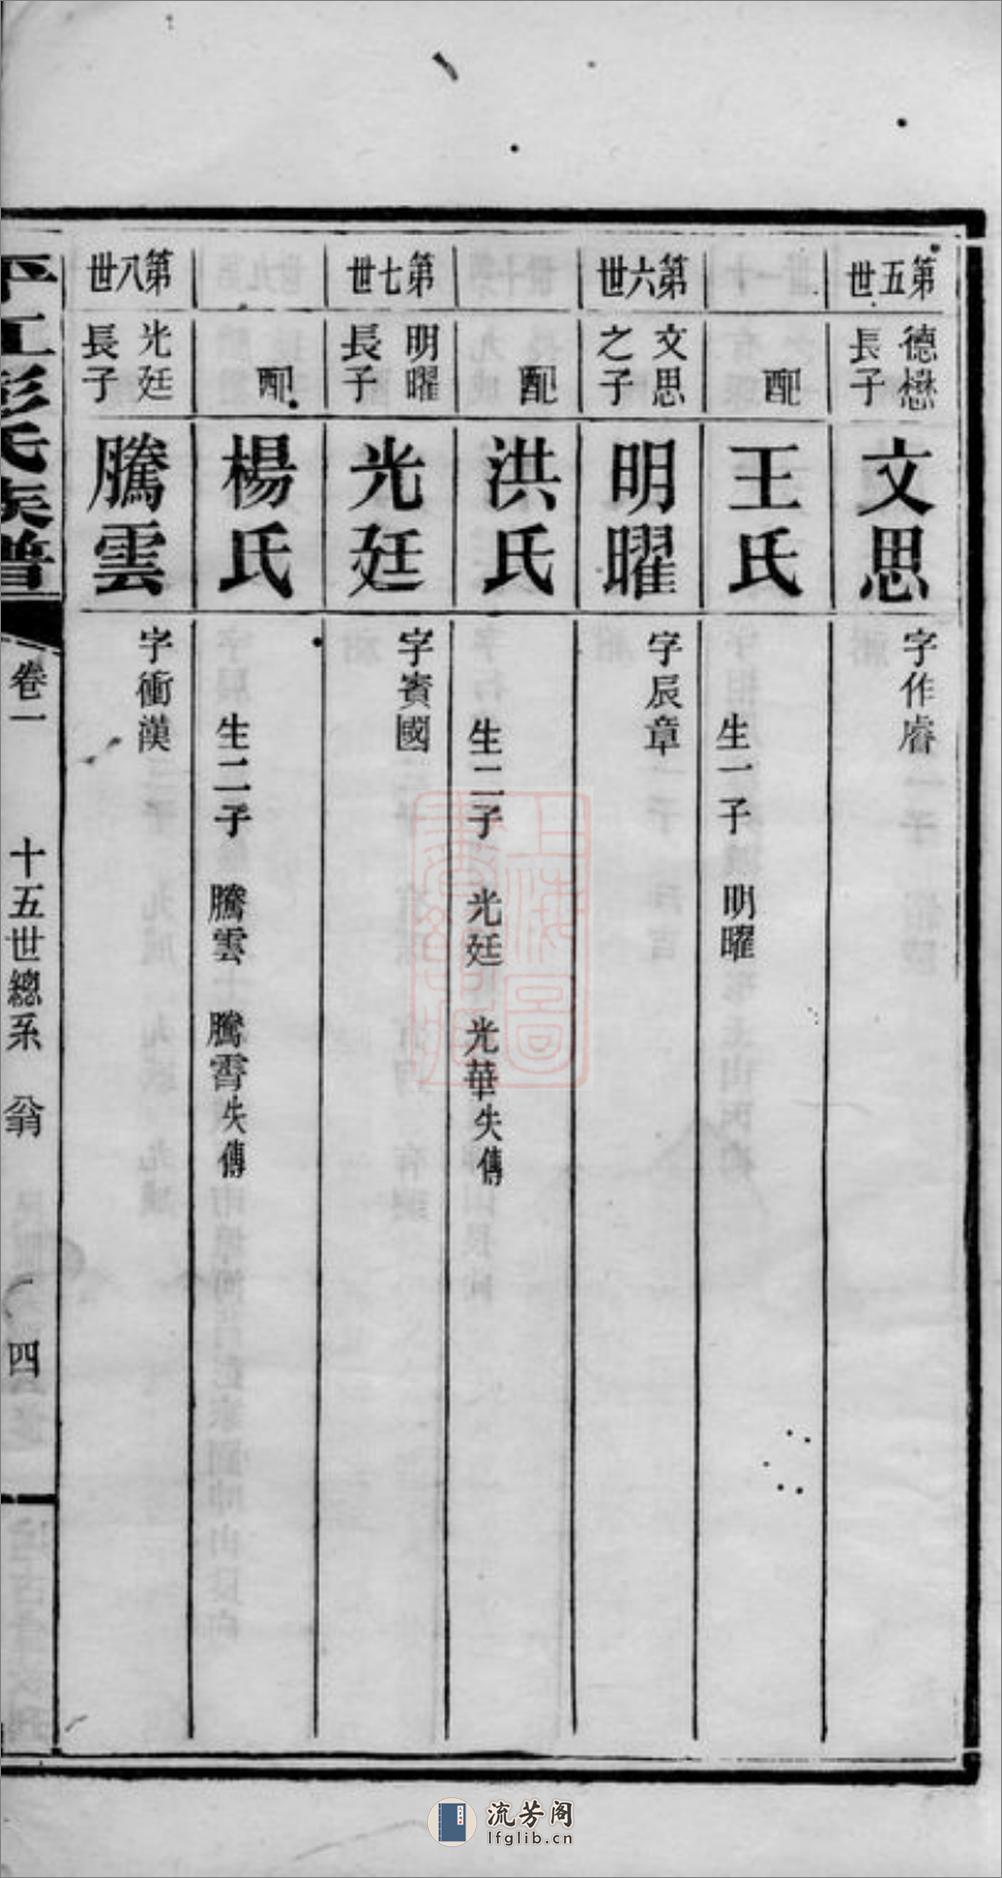 第五世
德懋長子
文思
字作睿
配
王氏
生一子 明曜
第六世
文思之子
明曜
字辰章
配
洪氏
生二子 光廷 光華失傳
第七世
明曜長子
光廷
字賓國
配
楊氏
生二子 騰雲 騰霄失傳
第八世
光廷長子
騰雲
字衝漢
平江彭氏族譜
卷一
十五世總系 翁
四
上海圖書館藏
流芳阁
lfglib.cn